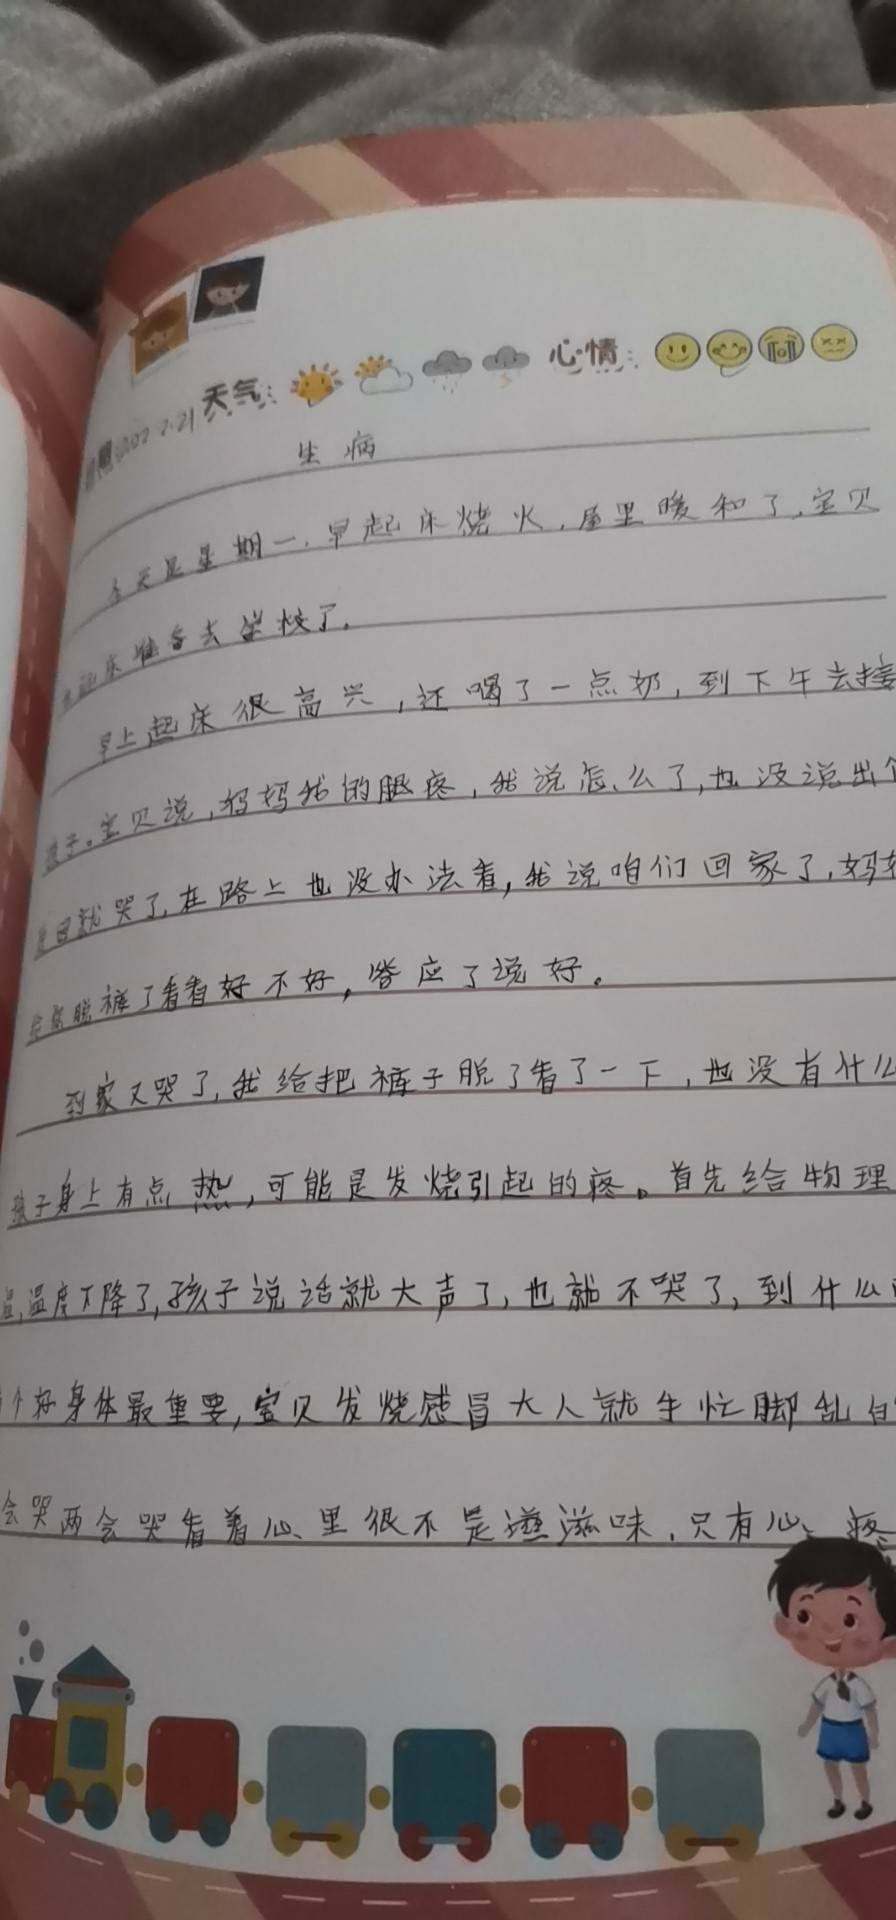 天气: 心情:
生病
今天是星期一.早起床烧火,屋里暖和了,宝贝
起床准备去学校了.
早上起床很高兴,还喝了一点奶,到下午去接
孩子。宝贝说,妈妈我的腿疼,我说怎么了,也没说出个
就哭了,在路上也没办法看,我说咱们回家了,妈妈
给你脱裤了看看好不好,答应了说好。
到家又哭了,我给把裤子脱了看了一下,也没有什么
孩子身上有点热,可能是发烧引起的疼。首先给物理
温,温度下降了,孩子说话就大声了,也就不哭了,到什么
个好身体最重要,宝贝发烧感冒大人就手忙脚乱
会哭两会哭看着心里很不是滋滋味.只有心疼